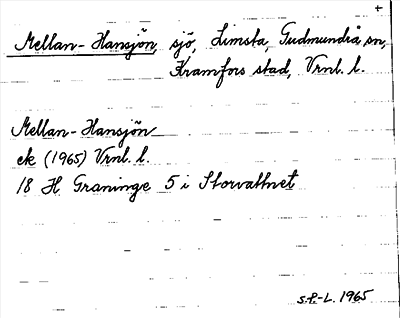 +
Mellan-Hansjön, sjö, Limsta, Gudmundrå sn,
Kramfors stad, Vrnl. l.
Mellan-Hansjön
ek (1965) Vrnl. l.
18 H Graninge 5 i Storvattnet
1965